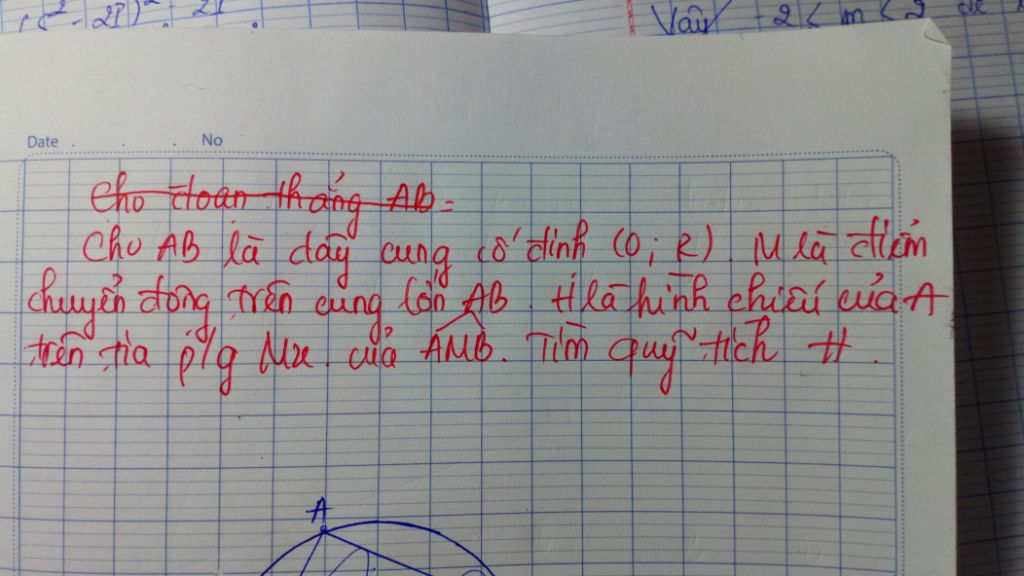 (2² - 2I)² - 2I .
Vậy -2 < m < 2
Date . . . No
Cho đoạn thẳng AB =
Cho AB là dây cung cố định (O; R). M là điểm
chuyển động trên cung lớn AB. H là hình chiếu của A
trên tia p/g Mx của AMB. Tìm quỹ tích H.
A